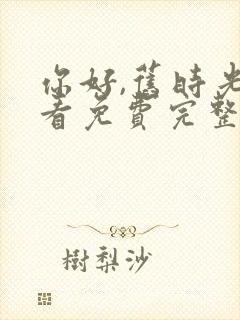 你好,舊時光
看免費完整
樹梨沙